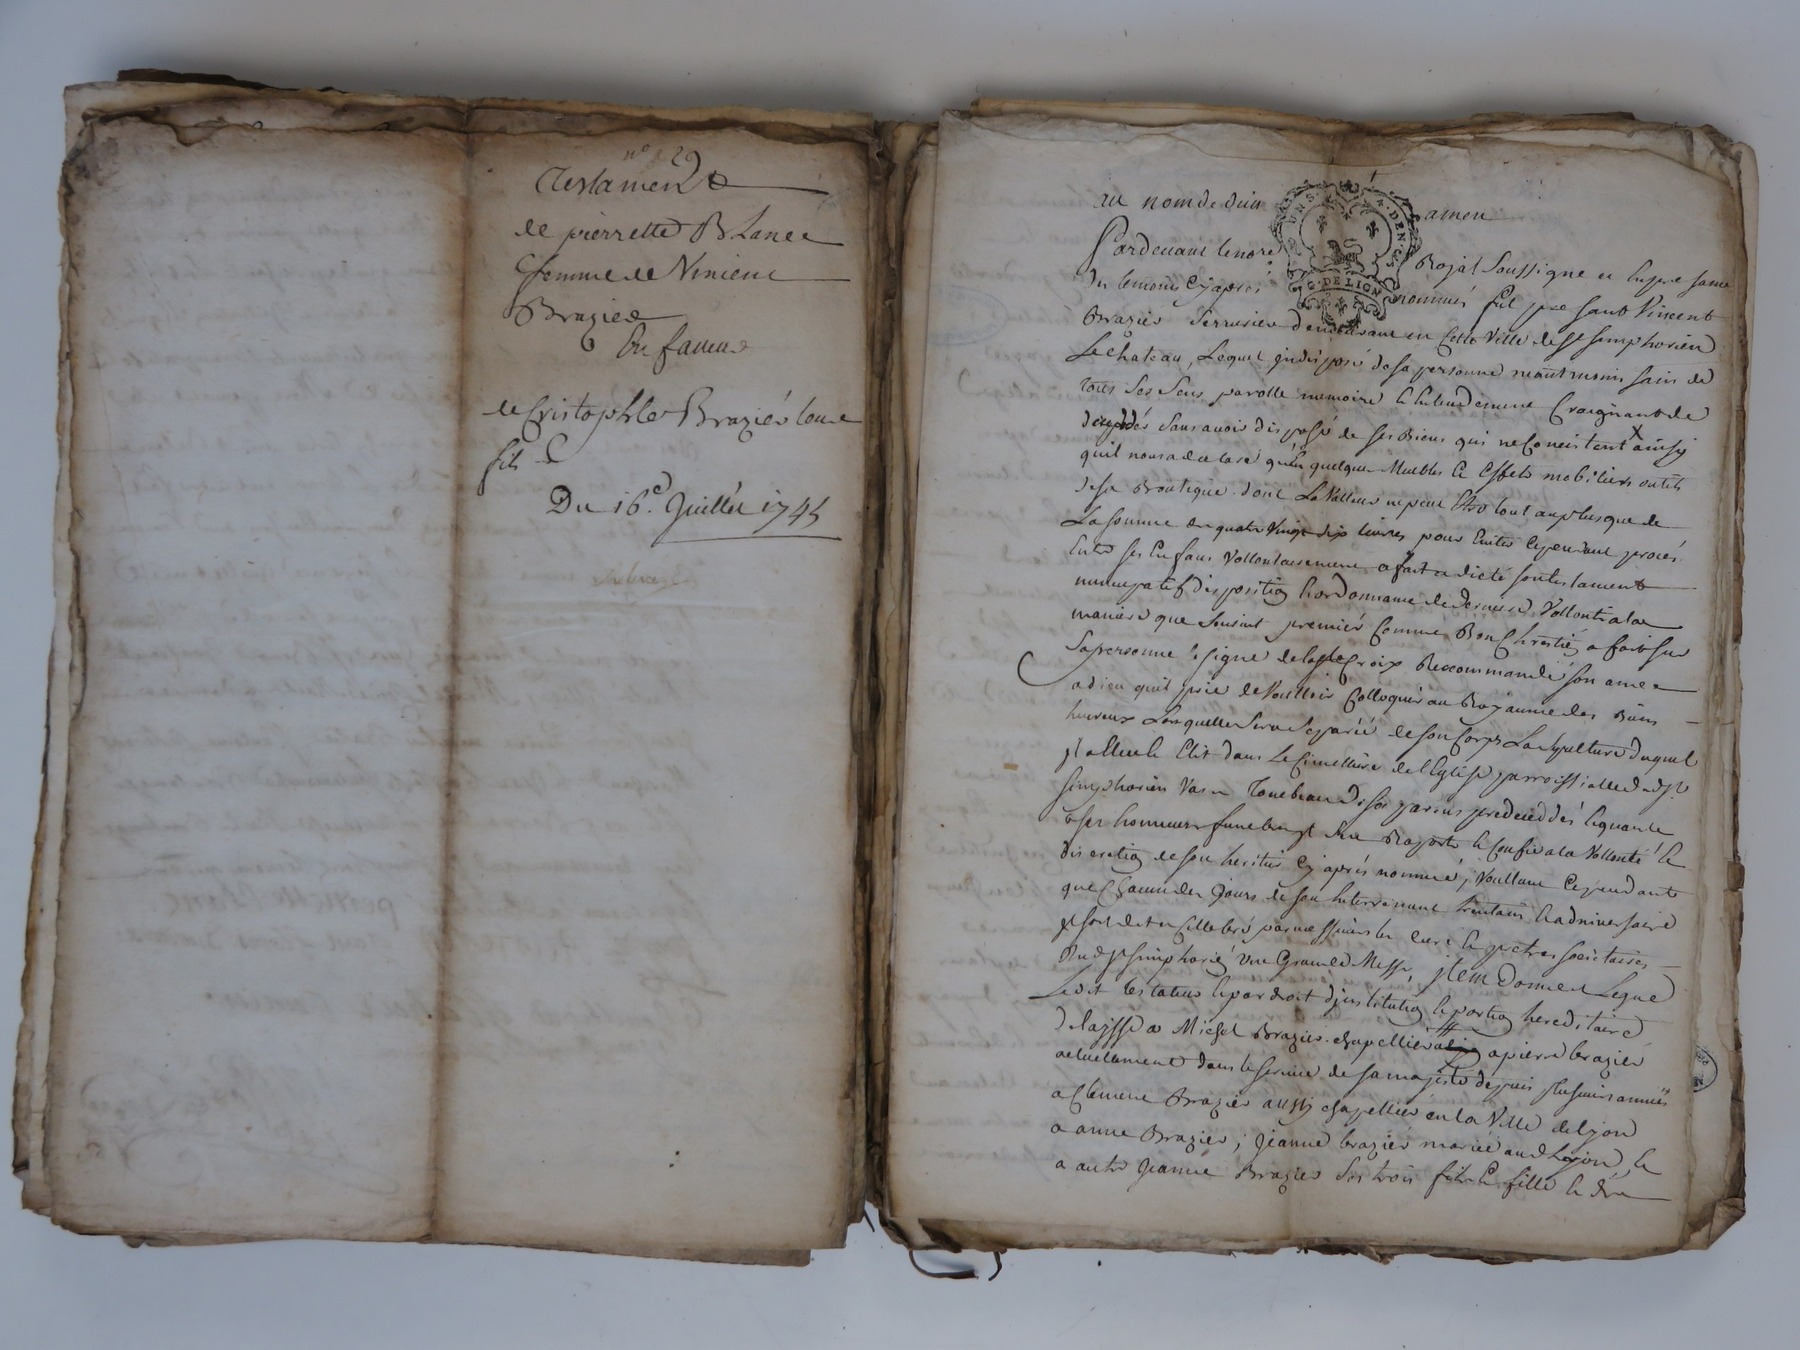 n° 20
Testament
de pierrette Blanc
femme de Vincent
Brazier
En faveur
de Cristophle Braziér leur
fils
Du 16e. Juillet 1745
au nom de dieu amen
Pardevant le no.re Royal Soussigné en presence
des temoins Cy apres nommés fut present Vincent
Brazier Serrurier demeurant en cette Ville de St Simphorien
Le chateau, Lequel indisposé de sa personne neantmoins sain de
tous ses Sens parolle memoire & Entendement Craignant de
deceddér Sans avoir disposé de ses Biens qui ne Consistent ainsy
quil nous a declaré qu'en quelques Meubles & Effets mobiliers outils
de sa Boutique dont La Valleur ne peut Etre tout au plus que de
La somme de quatre Vingt dix livres pour Eviter Cependant procés
Entre ses Enfans Vollontairement a fait & dicté son testament
nuncupatif disposition & ordonnance de derniere Vollonté a la
maniere que Sensuit premiér Comme Bon Chrestien a fait sur
Sa personne le signe de la Ste Croix Recommandé son ame
a dieu quil prie de Voulloir Colloquer au Royaume des Biens
heureux Lors quelle Sera Separée de son Corps La sepulture duquel
il a Eleu & Elit dans Le Cimettiere de l'Eglise parroissialle dud St
Simphorien Vas & Tombeau de ses parens predeceddés & quant a
ses honneurs funebres il s'en Raporte & Confie a la Vollonté &
discretion de son heritier Cy aprés nommé, Voullant Cependant
que Chacun des Jours de son Enterrement trentain & adniversaire
il soit dit & Cellebré par messieurs les curé & prêtres societaires
dud St Simphorien une Grande Messe, jtem Donne & Legue
Ledit testateur & par droit d'institution & portion hereditaire
delaisse a Michel Brazier chapellier a pierre brazier
actuelement dans le service de sa majesté depuis plusieurs années
a Clement Brazier aussy chapellier en la Ville de Lyon
a anne Brazier; Jeanne brazier mariée aud Lyon, &
a autre Jeanne Brazier ses trois fils & filles &